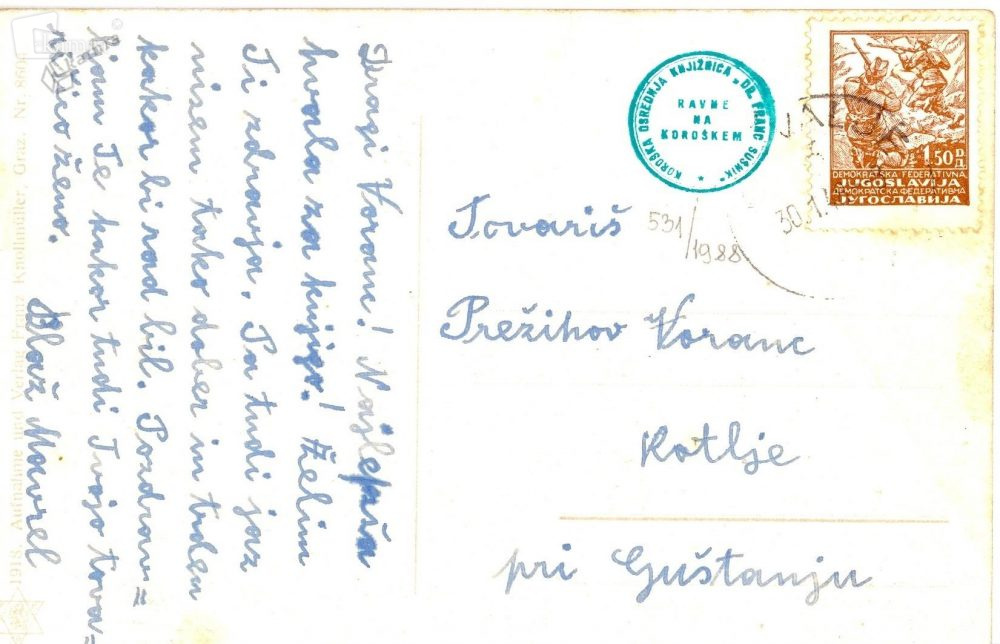 Dragi Voranc! Najlepša
hvala za knjigo! Želim
Ti zdravja. Pa tudi jaz
nisem tako dober in trden
kakor bi rad bil. Pozdrav=
ljam Te kakor tudi Tvojo tova=
rišio ženo.
Blaž Mavrel
1918. Aufnahme und Verlag Franz Knollmüller, Graz. Nr. 860
KOROŠKA OSREDNJA KNJIŽNICA "DR. FRANC SUŠNIK" *
RAVNE
NA
KOROŠKEM
531/1988
30.1.
1.50 D.
Д.
DEMOKRATSKA FEDERATIVNA
JUGOSLAVIJA
ДЕМОКРАТСКА ФЕДЕРАТИВНА
ЈУГОСЛАВИЈА
Tovariš
Prežihov Voranc
Kotlje
pri Guštanju